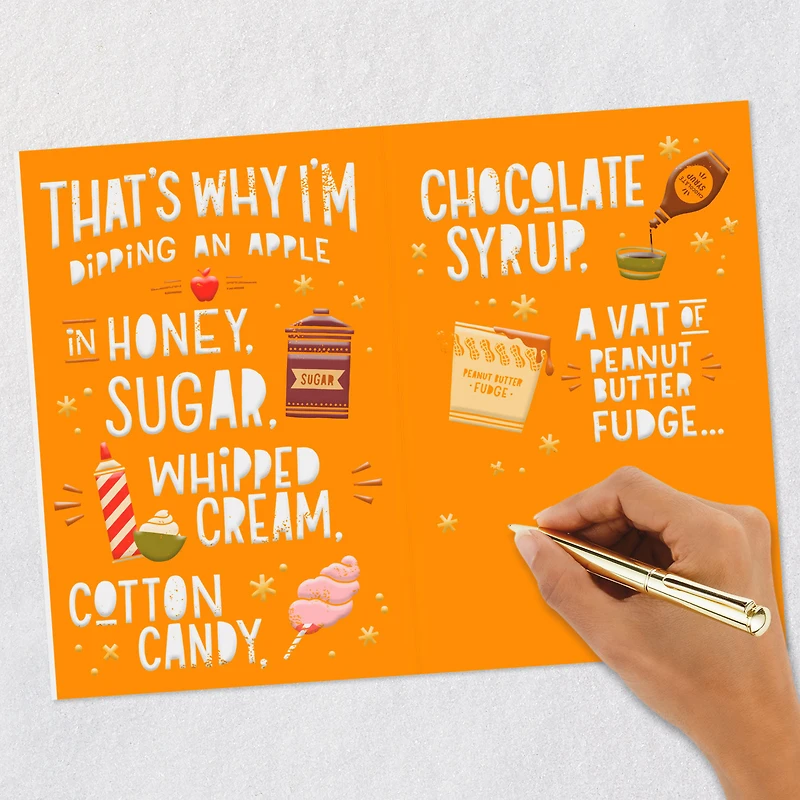 THAT'S WHY I'M
DiPPiNG AN APPLE
iN HONEY,
SUGAR,
SUGAR
WHiPPED
CREAM,
COTTON
CANDY,
CHOCOLATE
SYRUP,
CHOCOLATE
SYRUP
A VAT OF
PEANUT
BUTTER
FUDGE...
PEANUT BUTTER
· FUDGE ·